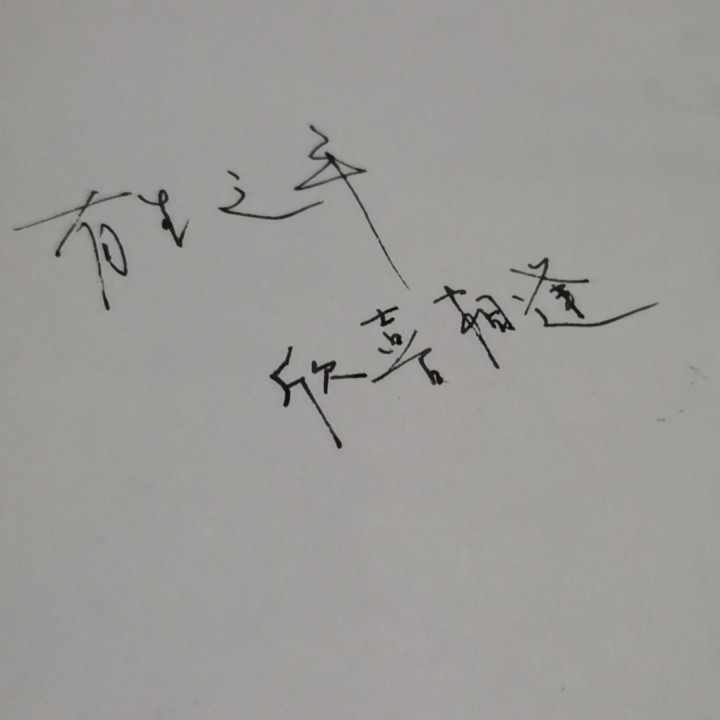 有生之年
欣喜相逢